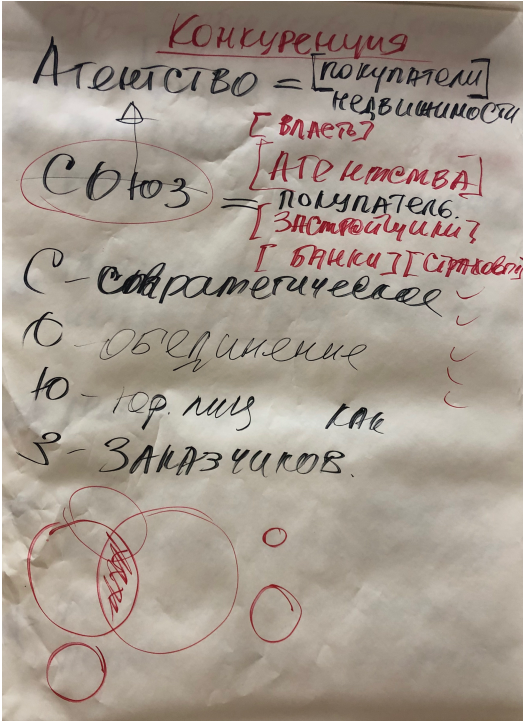 Конкуренция
Агентство = [покупатели]
недвижимости
[власть]
[Агентства]
СОЮЗ = покупатель.
[Застройщики]
[Банки] [страховы]
С - сократетическое
О - объединение
Ю - юр. лиц как
З - Заказчиков.